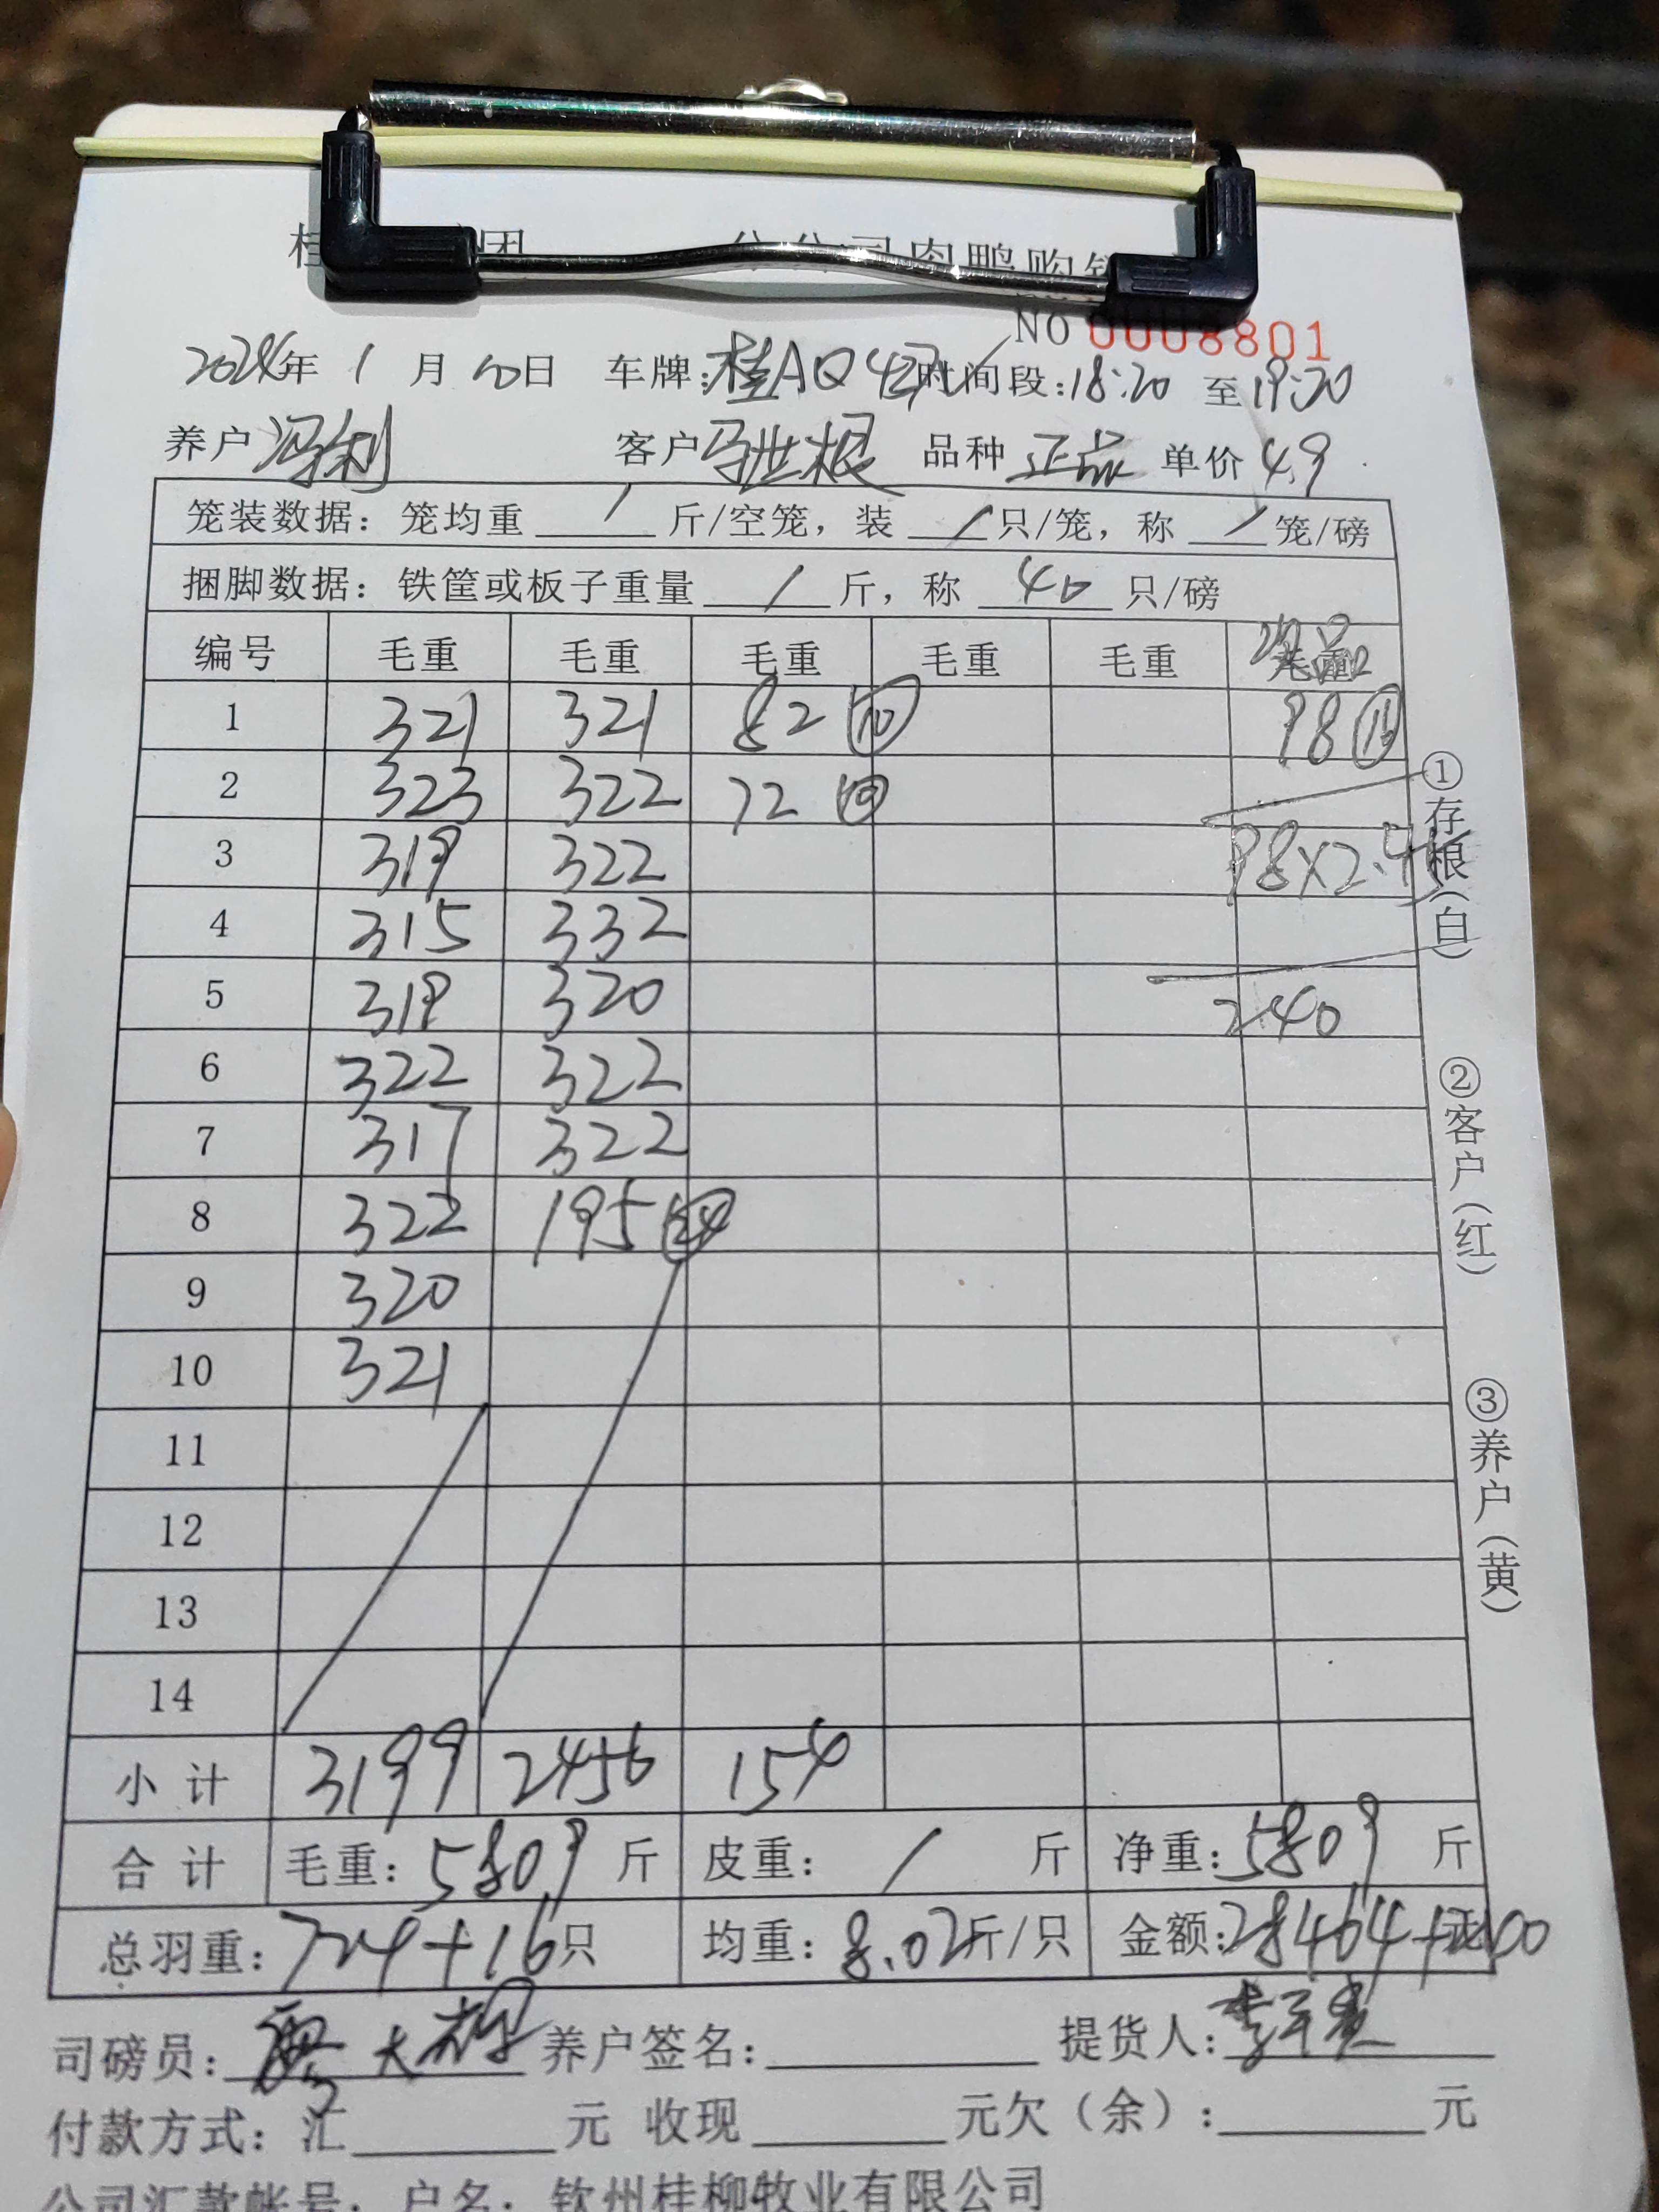 分公司肉鸭购销
NO 0008801
2024年 1 月 10日 车牌:桂AQ 时间段:18:20 至19:20
养户 冯利 客户 马世根 品种 正品 单价 4.9
笼装数据: 笼均重 / 斤/空笼, 装 / 只/笼, 称 / 笼/磅
捆脚数据: 铁筐或板子重量 / 斤, 称 40 只/磅
编号 毛重 毛重 毛重 毛重 毛重 次品
1 321 321 82 ⑩ 98
2 323 322 72
3 319 322 98×2.45
4 315 332
5 319 320 240
6 322 322
7 317 322
8 322 195 ㉔
9 320
10 321
11
12
13
14
小 计 3199 2456 154
合 计 毛重: 5809 斤 皮重: / 斤 净重: 5809 斤
总羽重: 724+16只 均重: 8.02斤/只 金额:28464+元
司磅员: 养户签名: 提货人:
付款方式: 汇 元 收现 元欠(余): 元
公司汇款帐号: 户名: 钦州桂柳牧业有限公司
①存根(白)
②客户(红)
③养户(黄)